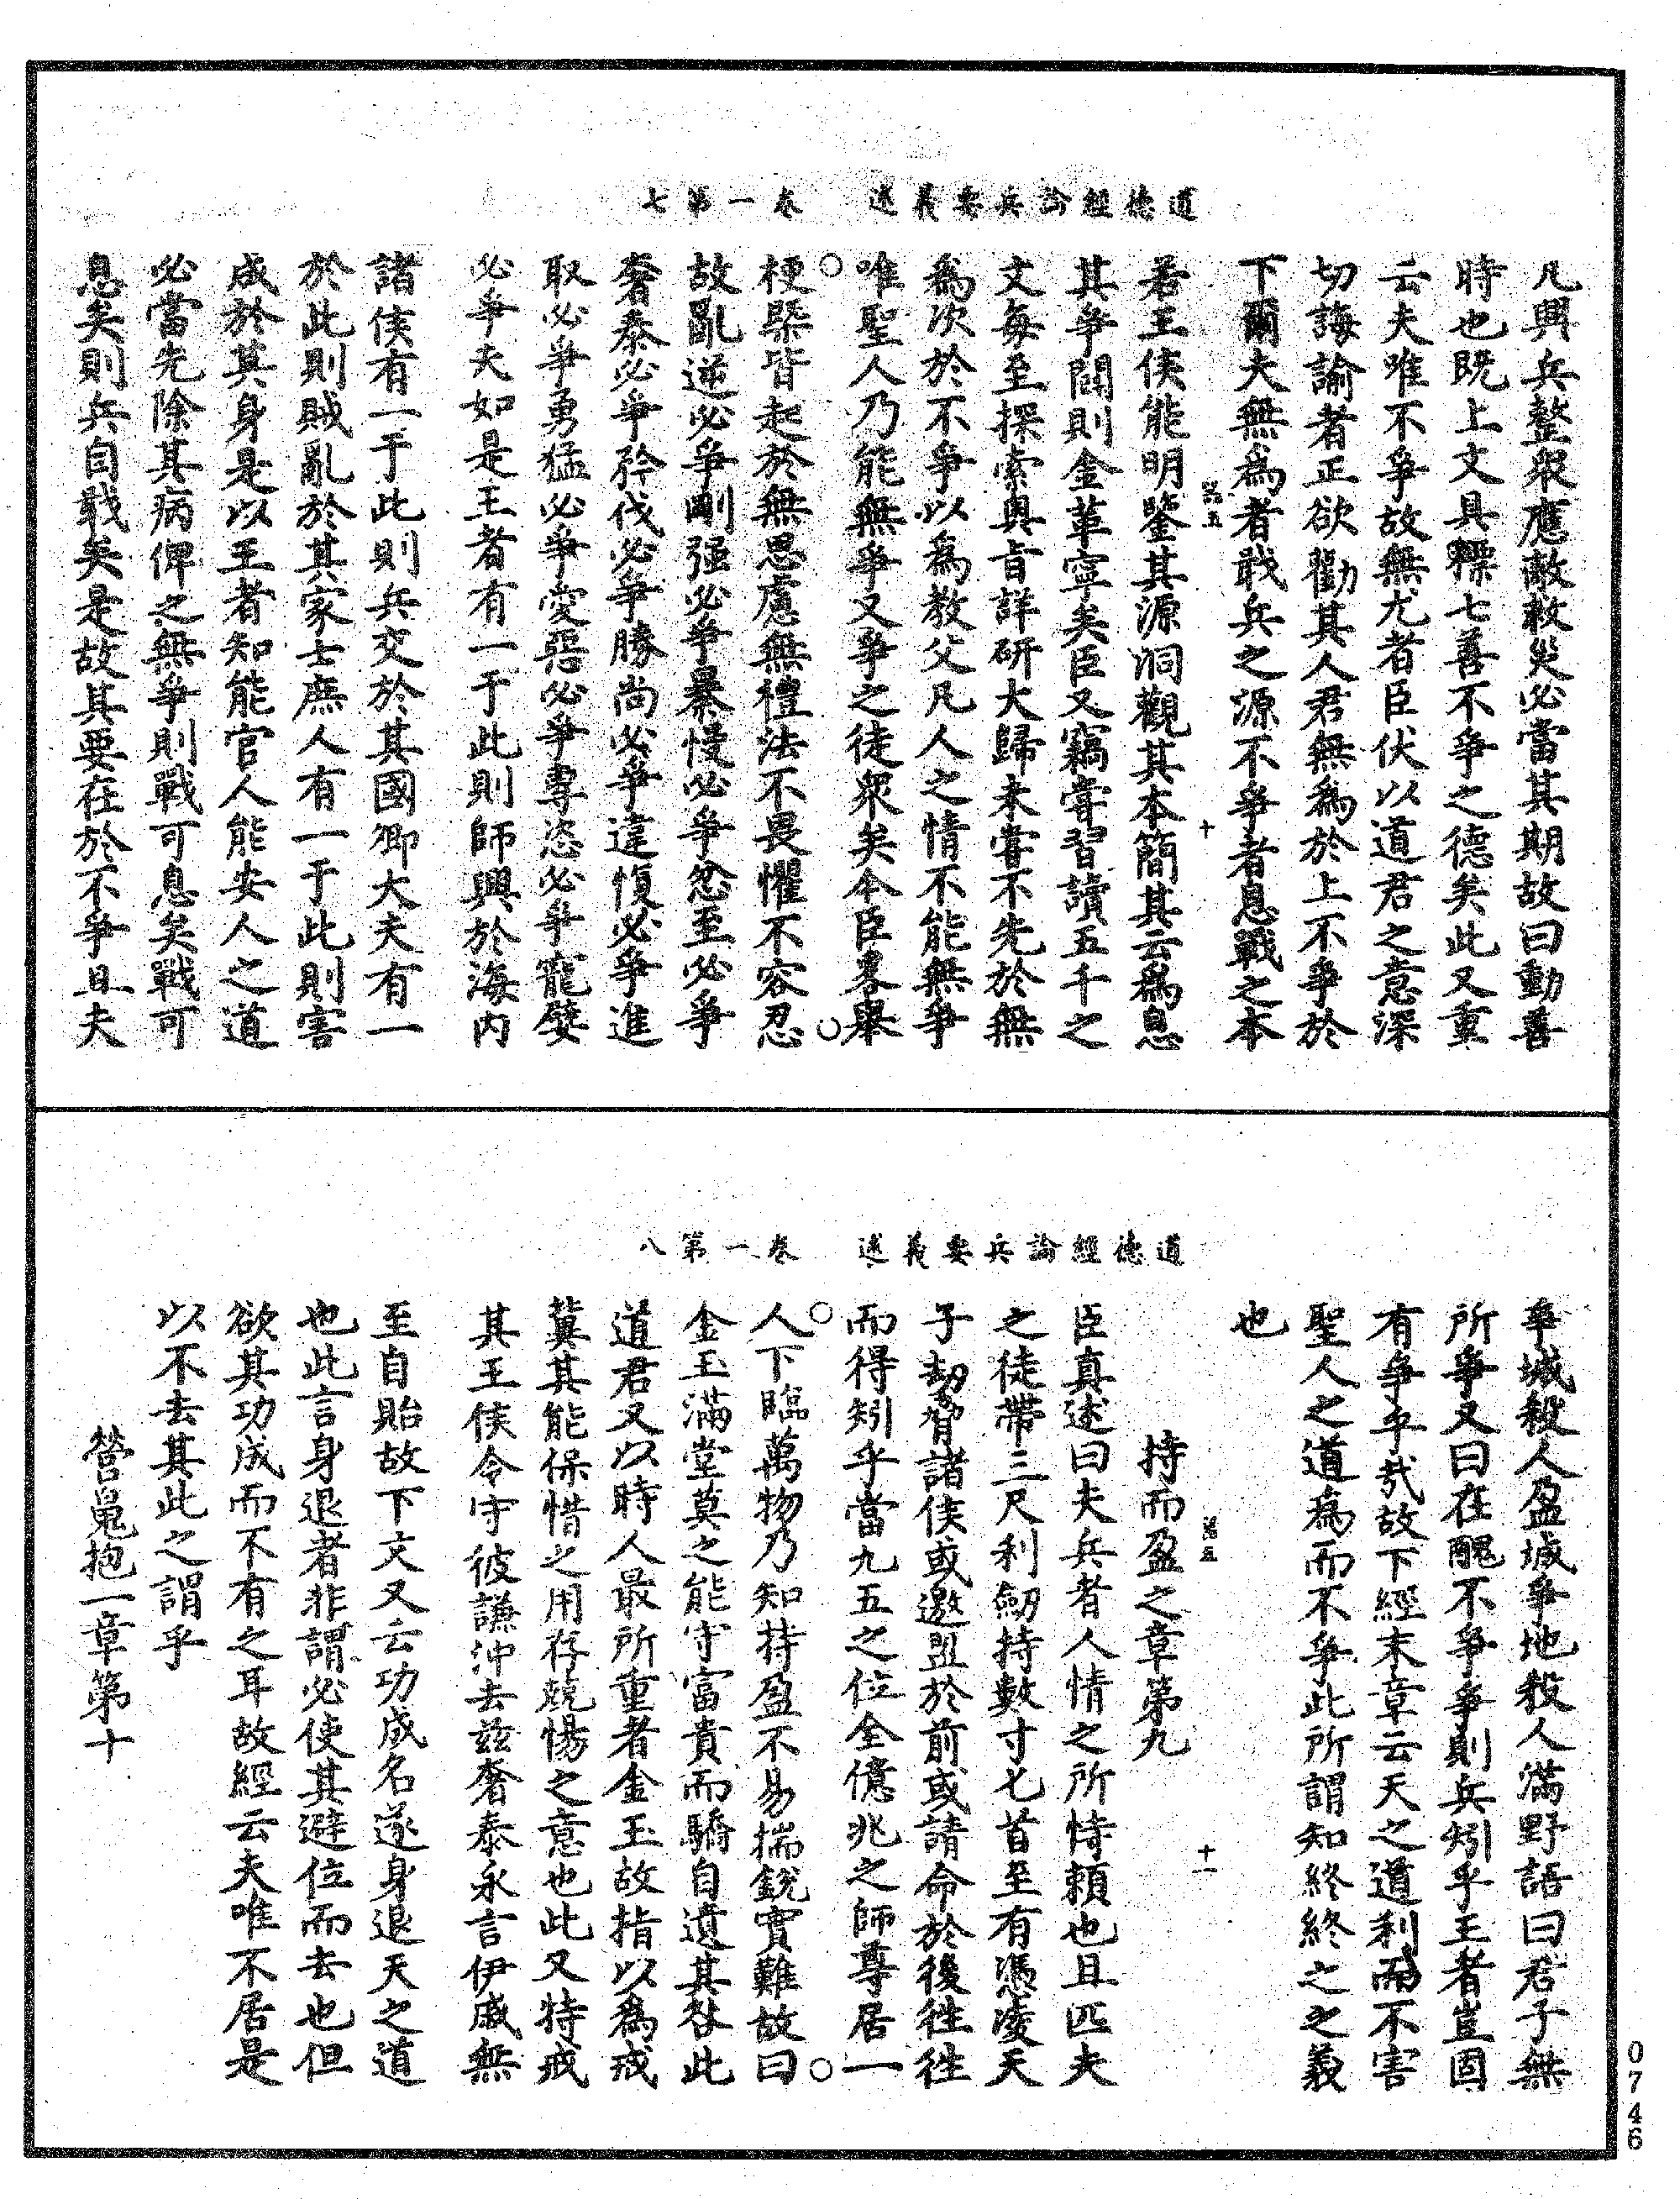 道德經論兵要義述　卷一第七
凡興兵整衆應敵救災必當其期故曰動善
時也既上文具標七善不爭之德矣此又重
云夫唯不爭故無尤者臣伏以道君之意深
切誨諭者正欲勸其人君無爲於上不爭於
下爾夫無爲者戢兵之源不爭者息戰之本
若王侯能明鑒其源洞觀其本簡其云爲息
其爭鬬則金革寧矣臣又竊嘗習讀五千之
文每至探索奧旨詳研大歸未嘗不先於無
爲次於不爭以爲教父凡人之情不能無爭
唯聖人乃能無爭又爭之徒衆矣今臣畧舉
梗槩皆起於無思慮無禮法不畏懼不容忍
故亂逆必爭剛强必爭暴慢必爭忿至必爭
奢泰必爭矜伐必爭勝尚必爭違愎必爭進
取必爭勇猛必爭愛惡必爭專恣必爭寵嬖
必爭夫如是王者有一于此則師興於海內
諸侯有一于此則兵交於其國卿大夫有一
於此則賊亂於其家士庶人有一于此則害
成於其身是以王者知能官人能安人之道
必當先除其病俾之無爭則戰可息矣戰可
息矣則兵自戢矣是故其要在於不爭且夫
道德經論兵要義述　卷一第八
爭城殺人盈城爭地殺人滿野語曰君子無
所爭又曰在醜不爭爭則兵矧乎王者豈固
有爭乎哉故下經末章云天之道利而不害
聖人之道爲而不爭此所謂知終終之之義
也
持而盈之章第九
臣真述曰夫兵者人情之所恃賴也且匹夫
之徒帶三尺利劒持數寸匕首至有憑凌天
子劫脅諸侯或邀盟於前或請命於後往往
而得矧乎當九五之位全億兆之師尊居一
人下臨萬物乃知持盈不易揣銳實難故曰
金玉滿堂莫之能守富貴而驕自遺其咎此
道君又以時人最所重者金玉故指以爲戒
冀其能保惜之用存兢惕之意也此又特戒
其王侯令守彼謙沖去兹奢泰永言伊戚無
至自貽故下文又云功成名遂身退天之道
也此言身退者非謂必使其避位而去也但
欲其功成而不有之耳故經云夫唯不居是
以不去其此之謂乎
營䰟抱一章第十
十
十一
0746